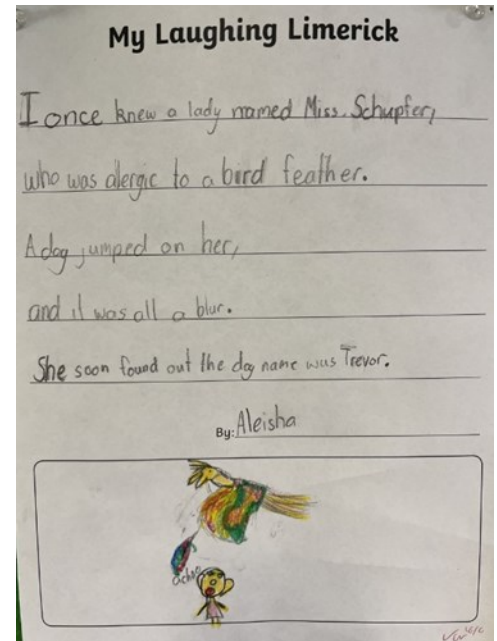 My Laughing Limerick
I once knew a lady named Miss. Schupfer,
who was alergic to a bird feather.
A dog jumped on her,
and it was all a blur.
She soon found out the dog name was Trevor.
By: Aleisha
achoo